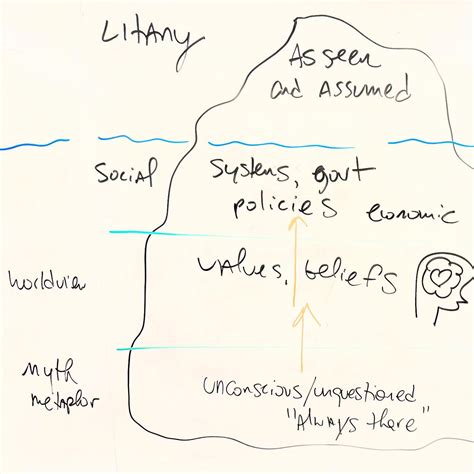 LITANY
As seen
and Assumed
Social
Systems, govt
policies economic
Worldview
values, beliefs
Myth
metaphor
unconscious/unquestioned
"Always there"